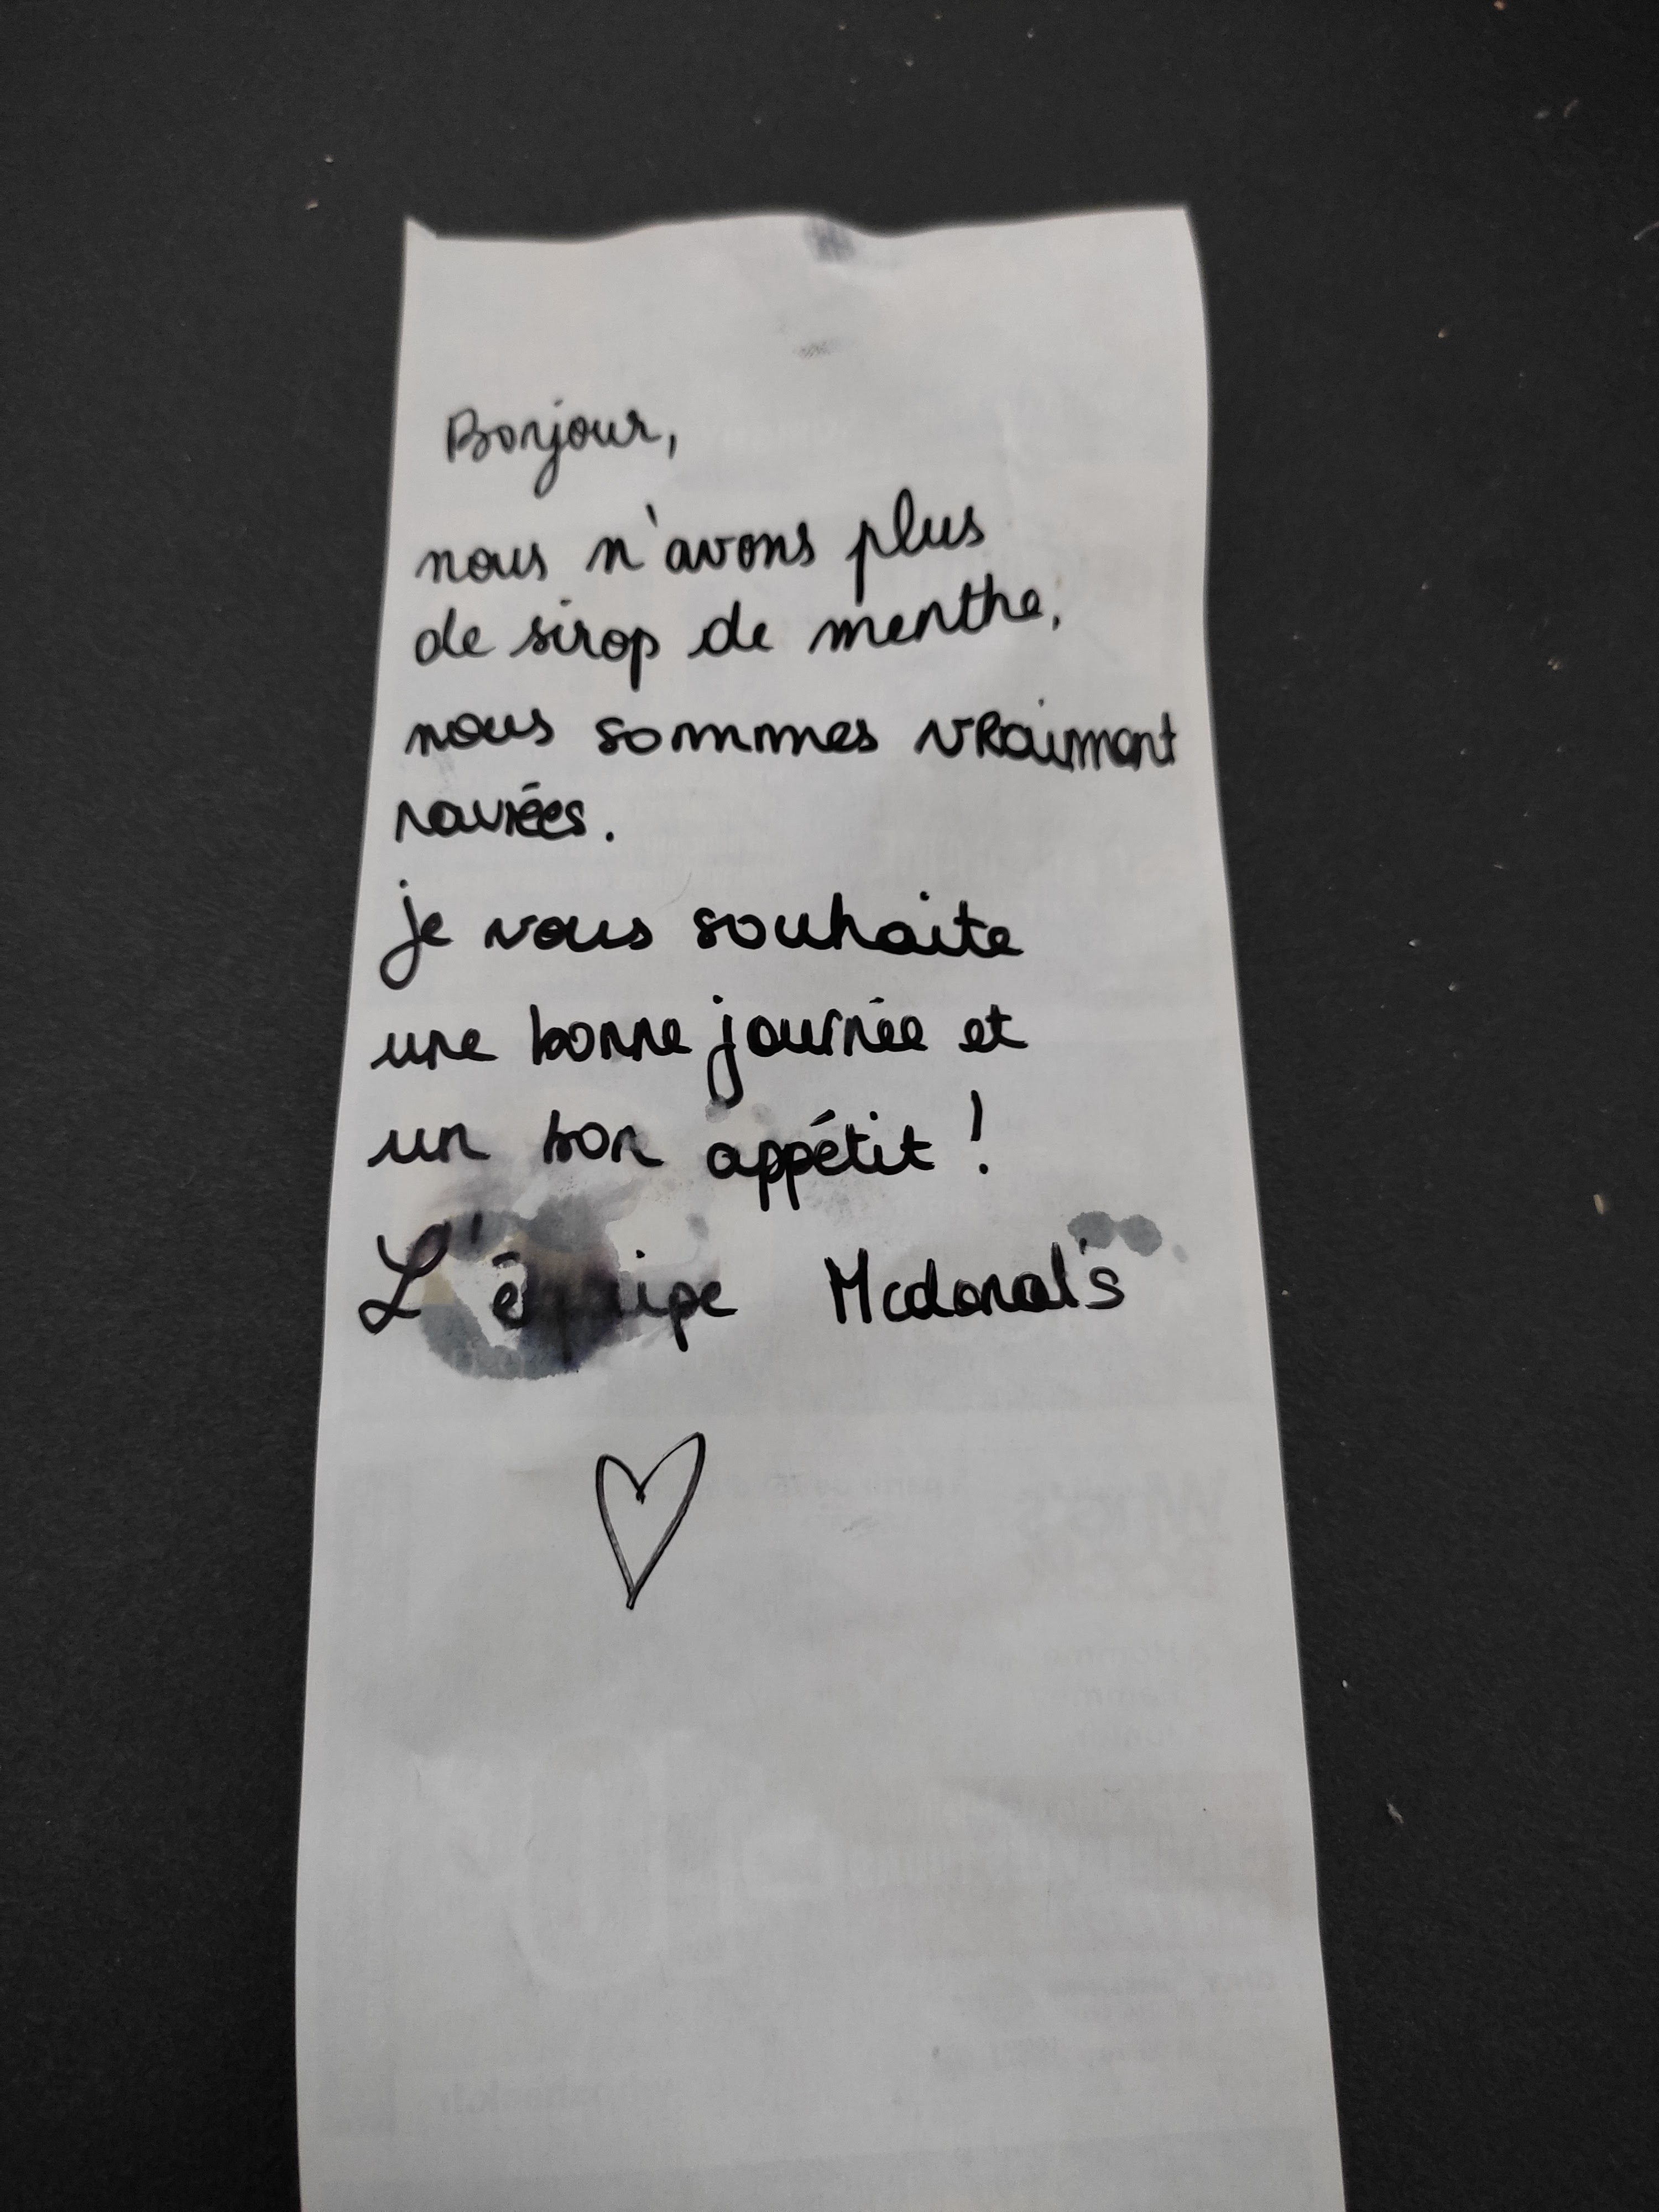 Bonjour,
nous n'avons plus
de sirop de menthe,
nous sommes vraiment
naviées.
je vous souhaite
une bonne journée et
un bon appétit !
L'équipe Mcdonal's